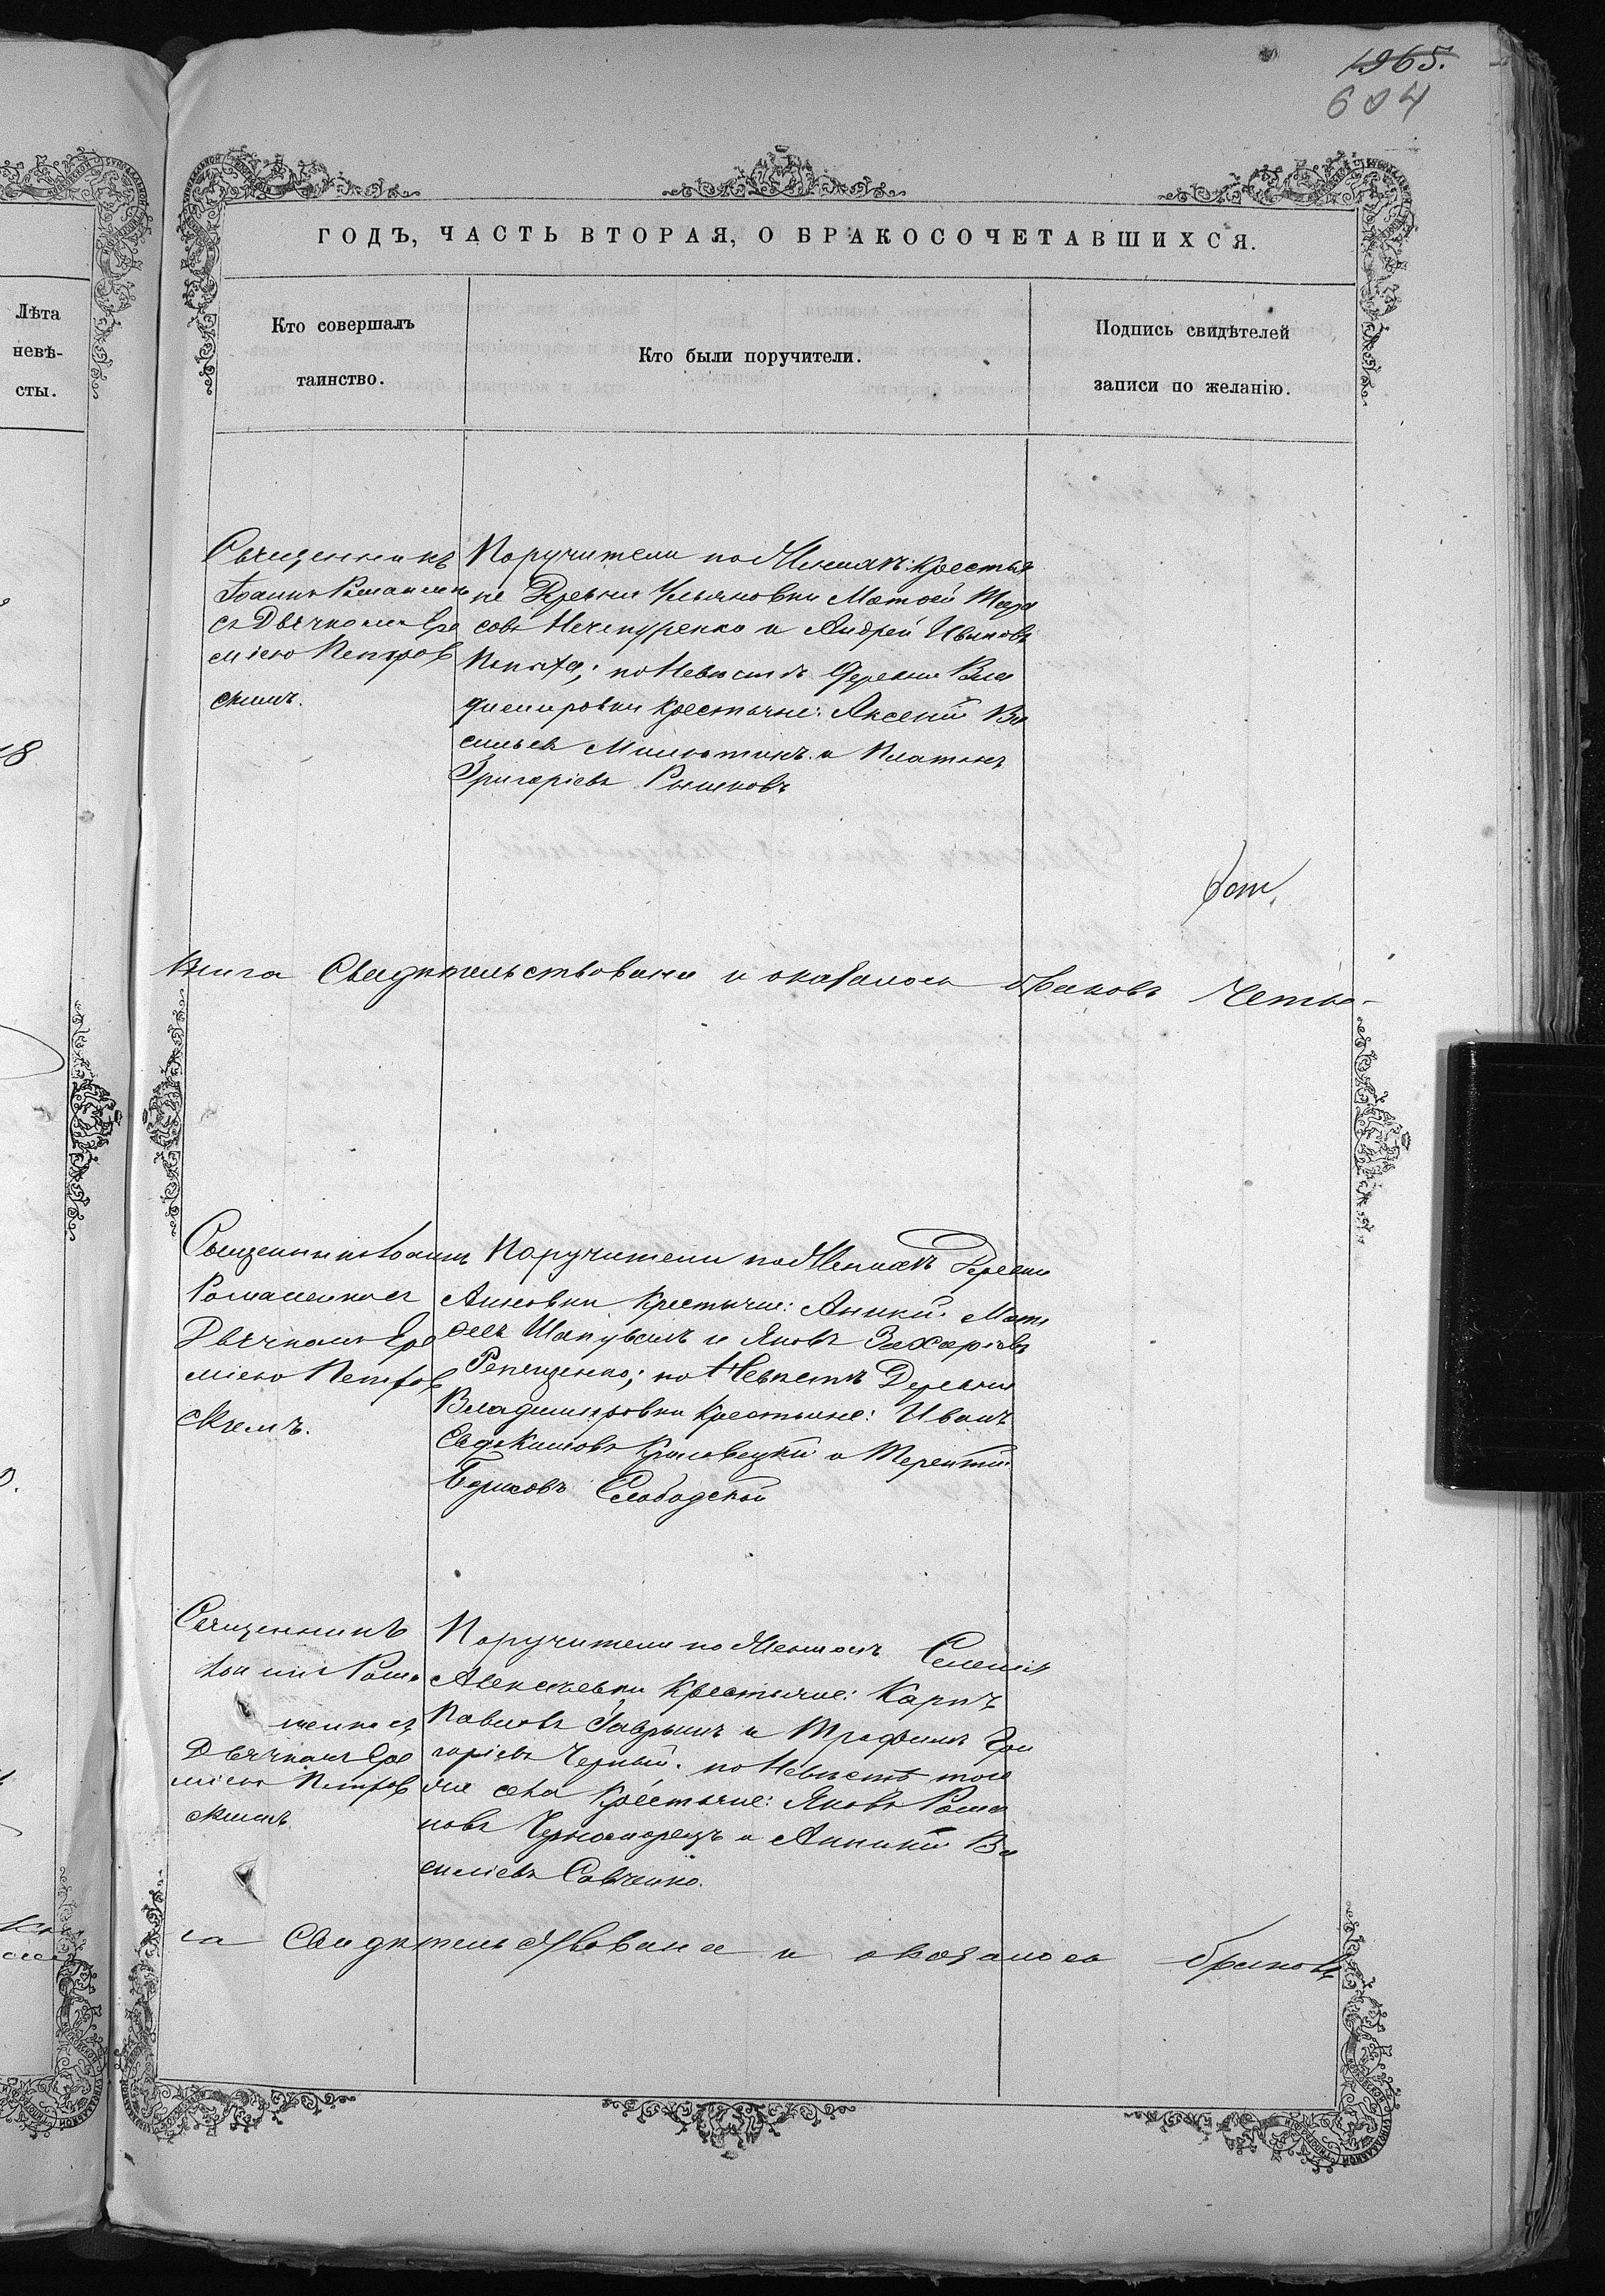 1965.
604
ГОДЪ, ЧАСТЬ ВТОРАЯ, О БРАКОСОЧЕТАВШИХСЯ.
Лѣта
невѣ-
сты.
Кто совершалъ
таинство.
Кто были поручители.
Подпись свидѣтелей
записи по желанію.
18
Священникъ
Іоаннъ Романенко
съ Дьячкомъ Ере
міею Петров
скимъ.
Поручители по Женихѣ: крестья
не Деревни Ульяновки Матѳей Тара
совъ Нечипуренко и Андрей Ивановъ
по Невѣстѣ деревни Вла
димировки крестьяне: Аксентій Ва
сильевъ Милютинъ и Платонъ
Григоріевъ Рышковъ
Книга Свидѣтельствована и оказалось браковъ Четы-
Священникъ Іоаннъ
Романенко съ
Дьячкомъ Ере
міею Петров
скимъ.
Поручители по Женихѣ Деревни
Анновки Крестьяне: Аникій Мат
ѳеевъ Шаповалъ и Яковъ Захаріевъ
Репященко; по Невѣстѣ Деревни
Владимировки Крестьяне: Иванъ
Евдокимовъ и Терентій
Борисовъ Слободской
Священникъ
Іоаннъ Рома
ненко съ
Дьячкомъ Ере
міею Петров
скимъ
Поручители по Женихѣ Села
Алексѣевки Крестьяне: Карпъ
Павловъ Гаврышъ и Трофимъ Гри
горіевъ Черный. по Невѣстѣ того
же села Крестьяне: Яковъ Рома
новъ Черноморецъ и Аникій Ва
силіевъ Савченко.
га Свидѣтельствована и оказалось браковъ